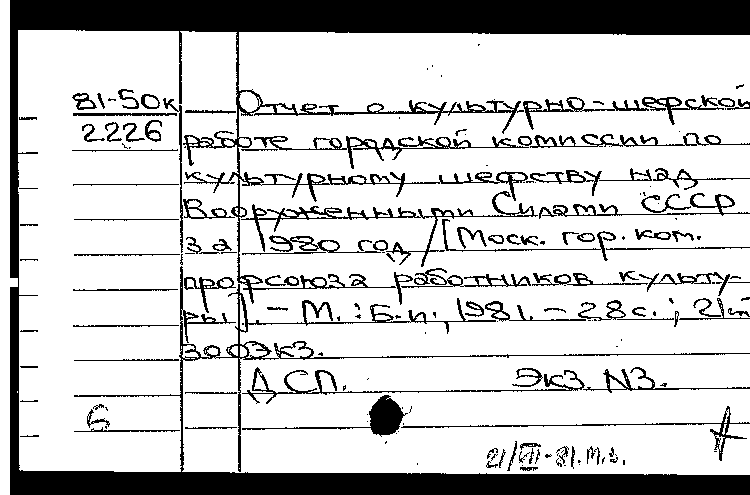 81-50к Отчет о культурно-шефской
2226 работе городской комиссии по
культурному шефству над
Вооруженными Силами СССР
за 1980 год / [Моск. гор. ком.
профсоюза работников культу-
ры]. - М. : Б.и., 1981. - 28 с. ; 21 см
300экз.
ДСП. Экз. N3.
6
21/VII-81.